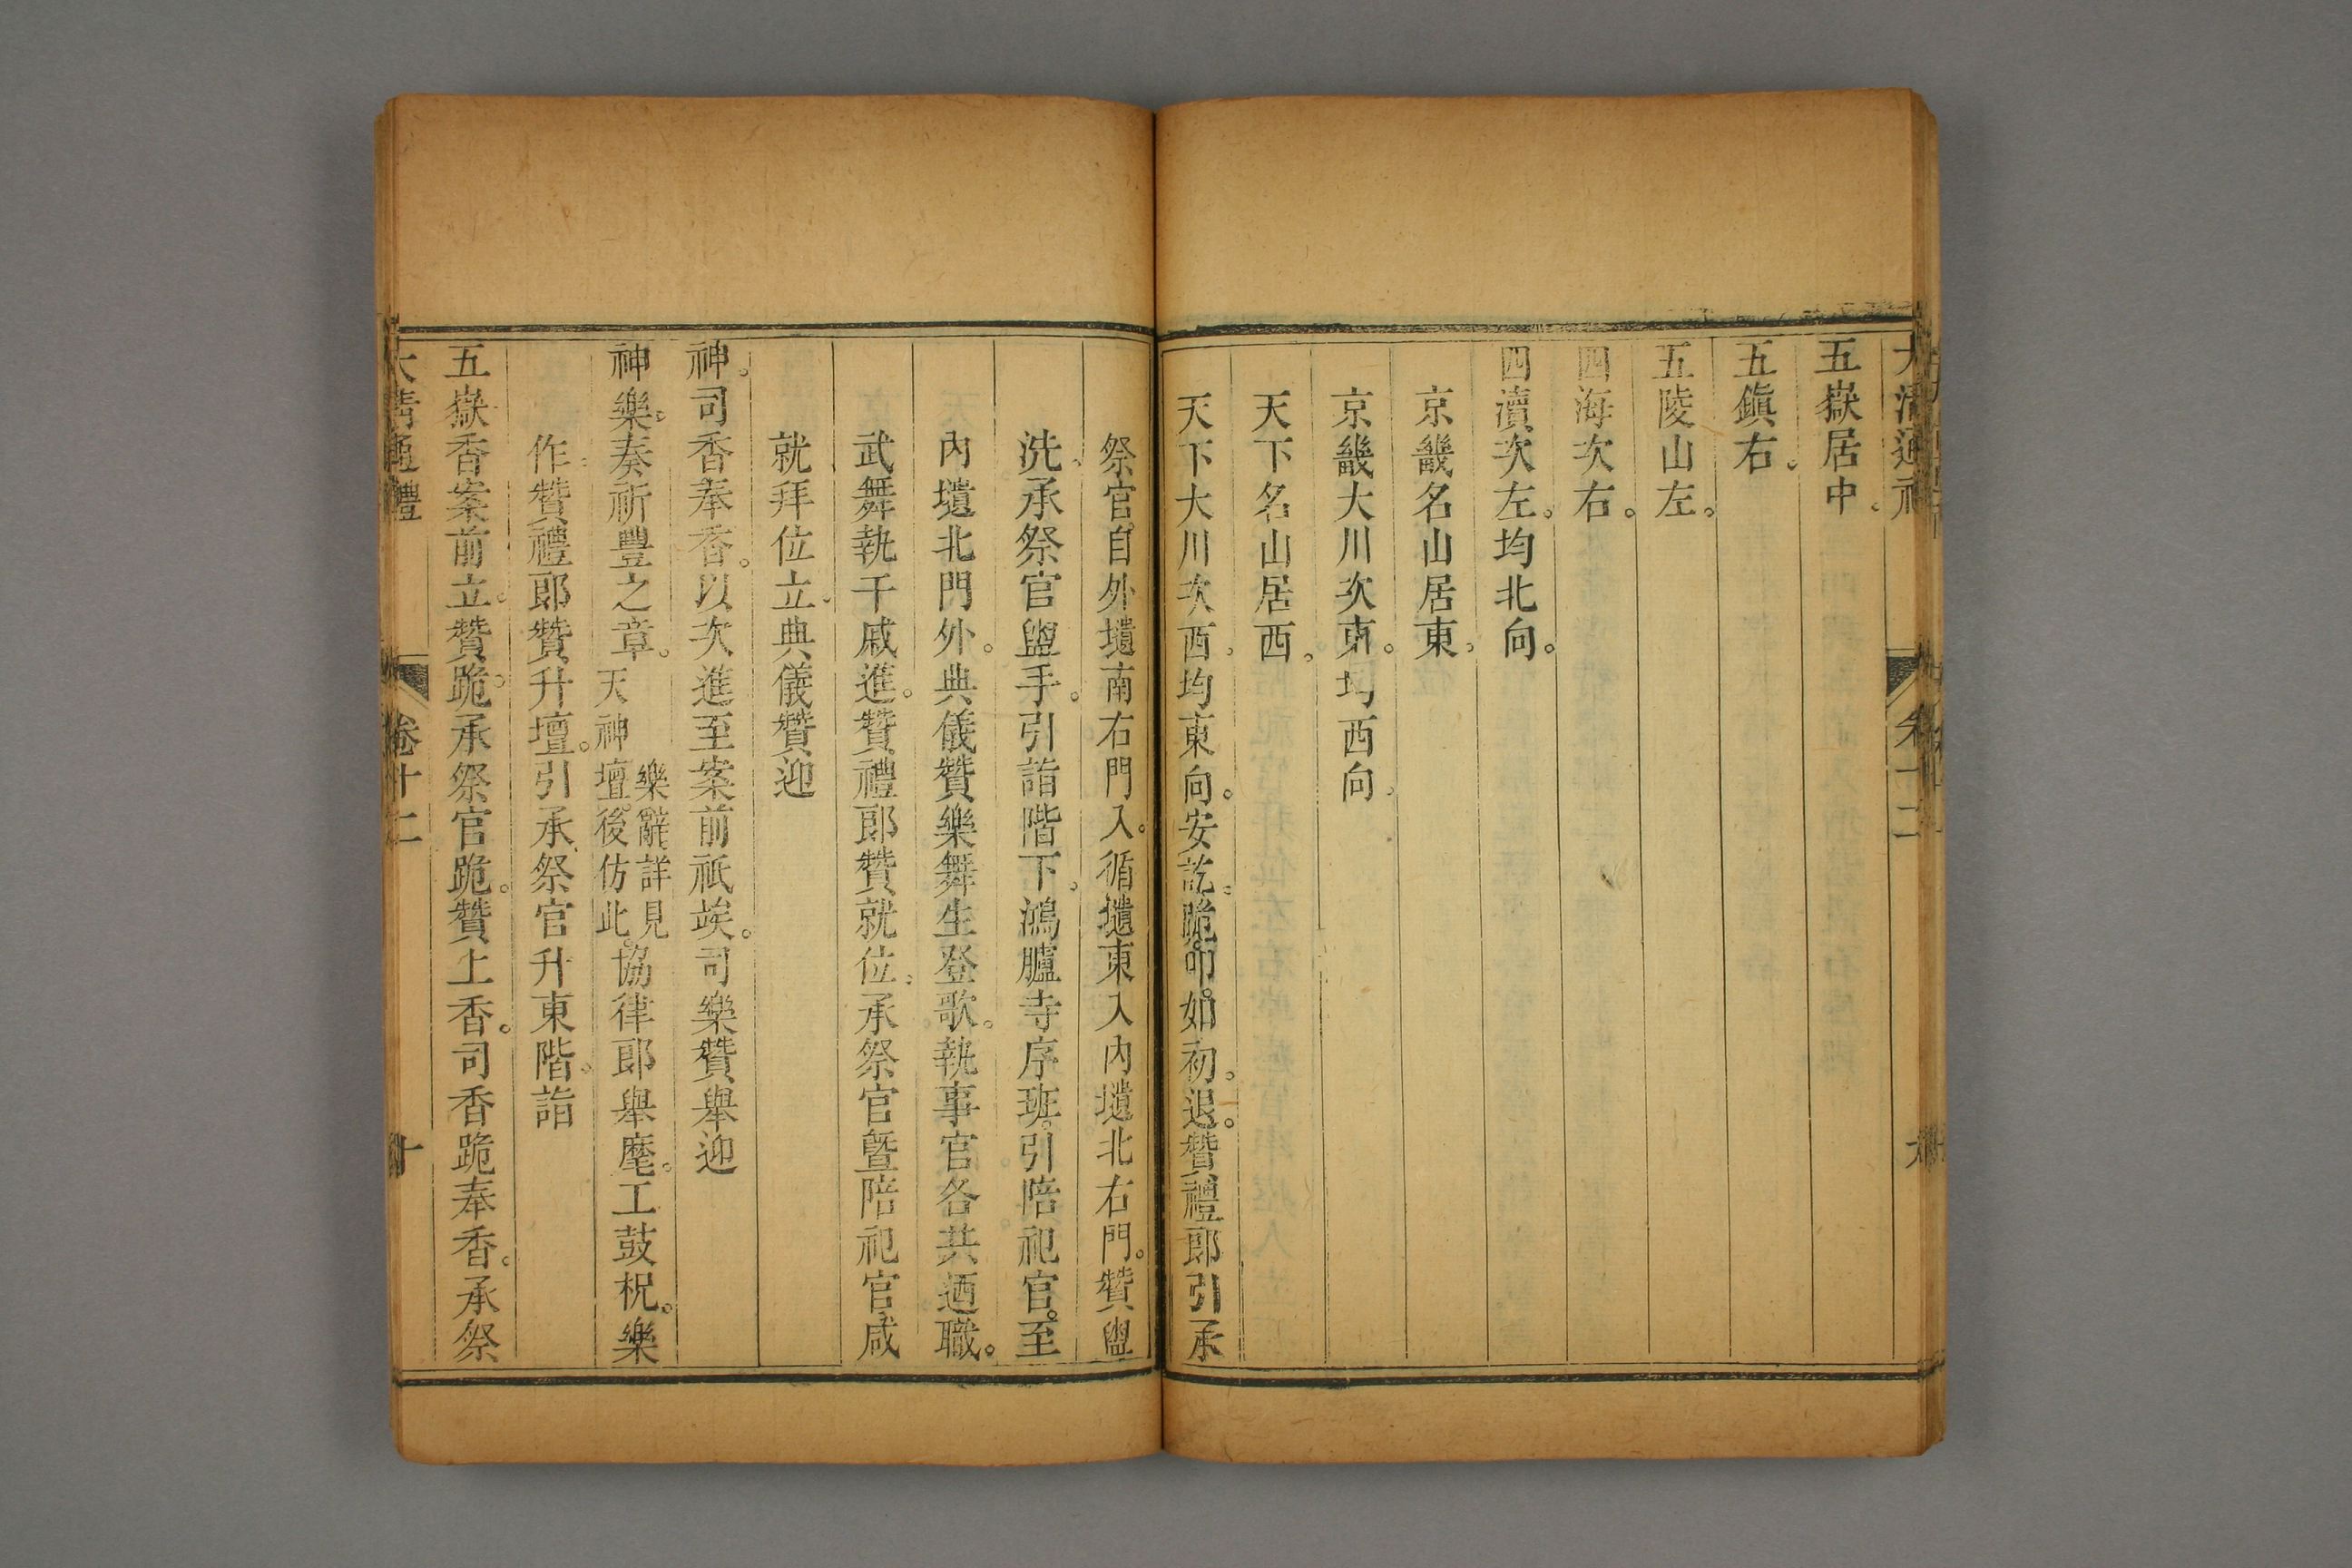 大清通禮 卷十二
五嶽居中。
五鎮右。
五陵山左。
四海次右。
四瀆次左。均北向。
京畿名山居東。
京畿大川次東。均西向。
天下名山居西。
天下大川次西。均東向。安訖。跪叩。如初。退。贊禮郎引承
祭官。自外壝南右門入。循壝東入內壝北右門。贊盥
洗。承祭官盥手。引詣階下。鴻臚寺序班。引陪祀官。至
內壝北門外。典儀贊樂舞生登歌。執事官各共迺職。
武舞執干戚進。贊禮郎贊就位。承祭官曁陪祀官咸
就拜位立。典儀贊迎
神。司香奉香。以次進至案前祇竢。司樂贊舉迎
神樂。奏祈豐之章。樂辭詳見天神壇。後仿此。協律郎舉麾。工鼓柷。樂
作。贊禮郎贊升壇。引承祭官升東階。詣
五嶽香案前立。贊跪。承祭官跪。贊上香。司香跪奉香。承祭
大清通禮 卷十二 十